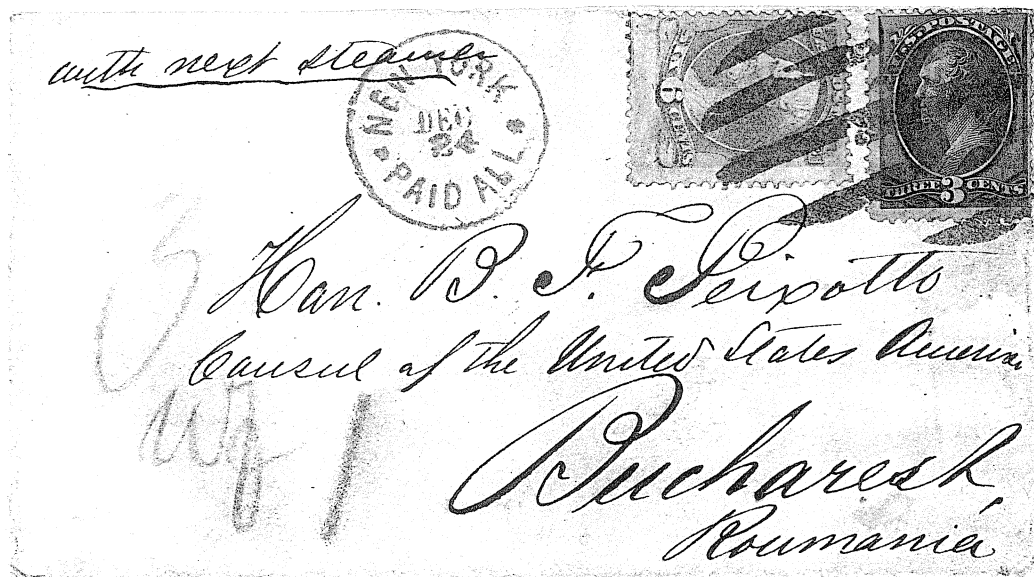 with next steamer
NEW YORK
DEC
24
PAID ALL
6 CENTS
U.S. POSTAGE
THREE 3 CENTS
Hon. B. F. Peixotto
Consul of the United States America
Bucharest,
Roumania